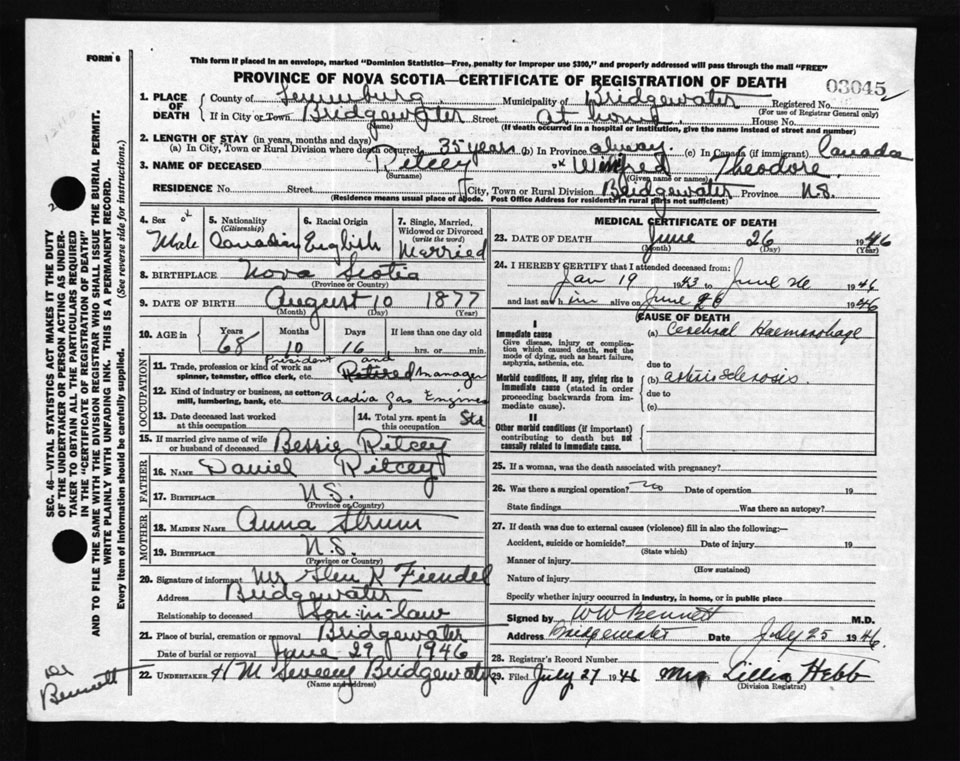 FORM 6
This form if placed in an envelope, marked "Dominion Statistics—Free, penalty for improper use $300," and properly addressed will pass through the mail "FREE"
PROVINCE OF NOVA SCOTIA—CERTIFICATE OF REGISTRATION OF DEATH
03045
1. PLACE OF DEATH { County of Lunenburg Municipality of Bridgewater Registered No.
(For use of Registrar General only)
If in City or Town Bridgewater Street at home House No.
(Name) (If death occurred in a hospital or institution, give the name instead of street and number)
2. LENGTH OF STAY (in years, months and days)
(a) In City, Town or Rural Division where death occurred 35 years (b) In Province always (c) In Canada (if immigrant) Canada
3. NAME OF DECEASED Ritcey ok Winfred Theodore
(Surname) (Given name or names)
RESIDENCE No. Street City, Town or Rural Division Bridgewater Province N.S.
(Residence means usual place of abode. Post Office Address for residents in rural parts not sufficient)
4. Sex ok Male
5. Nationality (Citizenship) Canadian
6. Racial Origin English
7. Single, Married, Widowed or Divorced (write the word) Married
8. BIRTHPLACE Nova Scotia
(Province or Country)
9. DATE OF BIRTH August 10 1877
(Month) (Day) (Year)
10. AGE in { Years 68 Months 10 Days 16 If less than one day old
hrs. or min.
OCCUPATION
President and
11. Trade, profession or kind of work as spinner, teamster, office clerk, etc. Retired Manager
12. Kind of industry or business, as cotton-mill, lumbering, bank, etc. Acadia Gas Engines
13. Date deceased last worked at this occupation
14. Total yrs. spent in this occupation Std
15. If married give name of wife or husband of deceased Bessie Ritcey
FATHER
16. NAME Daniel Ritcey
17. BIRTHPLACE N.S.
(Province or Country)
MOTHER
18. MAIDEN NAME Anna Strum
19. BIRTHPLACE N.S.
(Province or Country)
20. Signature of informant Mr Glen K Fiendel
Address Bridgewater
Relationship to deceased Son-in-law
21. Place of burial, cremation or removal Bridgewater
Date of burial or removal June 29 1946
22. UNDERTAKER H M Bridgewater
(Name and address)
MEDICAL CERTIFICATE OF DEATH
23. DATE OF DEATH June 26 1946
(Month) (Day) (Year)
24. I HEREBY CERTIFY that I attended deceased from:
Jan 19 1943 to June 26 1946
and last saw him alive on June 26 1946
CAUSE OF DEATH
I
Immediate cause (a) Cerebral Haemorrhage
Give disease, injury or complication which caused death, not the mode of dying, such as heart failure, asphyxia, asthenia, etc.
due to
Morbid conditions, if any, giving rise to immediate cause (stated in order proceeding backwards from immediate cause). (b) arteriosclerosis
due to
(c)
II
Other morbid conditions (if important) contributing to death but not causally related to immediate cause.
25. If a woman, was the death associated with pregnancy?
26. Was there a surgical operation? no Date of operation 19
State findings Was there an autopsy?
27. If death was due to external causes (violence) fill in also the following:—
Accident, suicide or homicide? Date of injury 19
(State which)
Manner of injury
(How sustained)
Nature of injury
Specify whether injury occurred in industry, in home, or in public place
Signed by W W Bennett M.D.
Address Bridgewater Date July 25 1946
28. Registrar's Record Number
29. Filed July 27 1946 Mrs Lillia Hebb
(Division Registrar)
SEC. 46—VITAL STATISTICS ACT MAKES IT THE DUTY
OF THE UNDERTAKER OR PERSON ACTING AS UNDER-
TAKER TO OBTAIN ALL THE PARTICULARS REQUIRED
IN THE "CERTIFICATE OF REGISTRATION OF DEATH"
AND TO FILE THE SAME WITH THE DIVISION REGISTRAR WHO SHALL ISSUE THE BURIAL PERMIT.
WRITE PLAINLY WITH UNFADING INK. THIS IS A PERMANENT RECORD.
Every item of information should be carefully supplied. (See reverse side for instructions.)
Dr Bennett